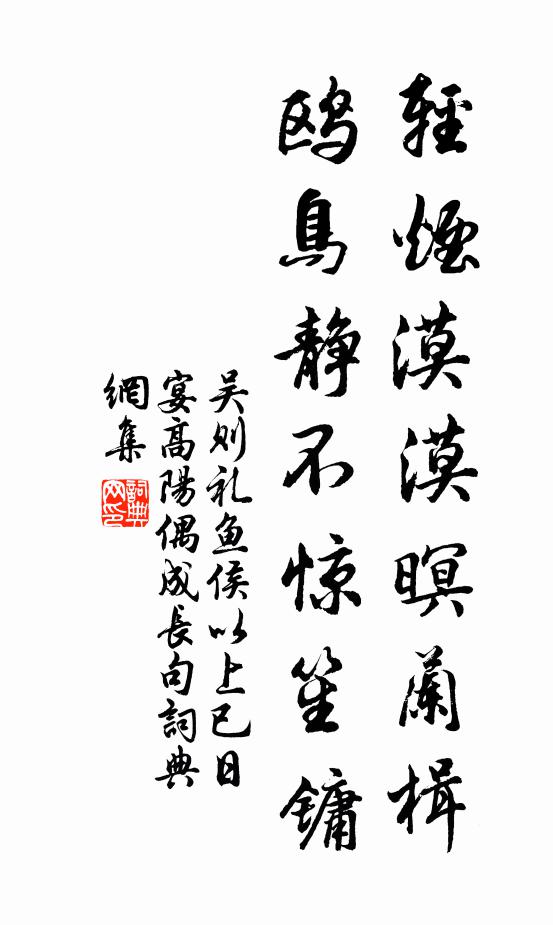 輕煙漠漠暝蘭楫
鷗鳥静不惊笙鏞
吴则礼鱼侯以上巳日
宴高陽偶成長句詞典
網集
詞典
网印